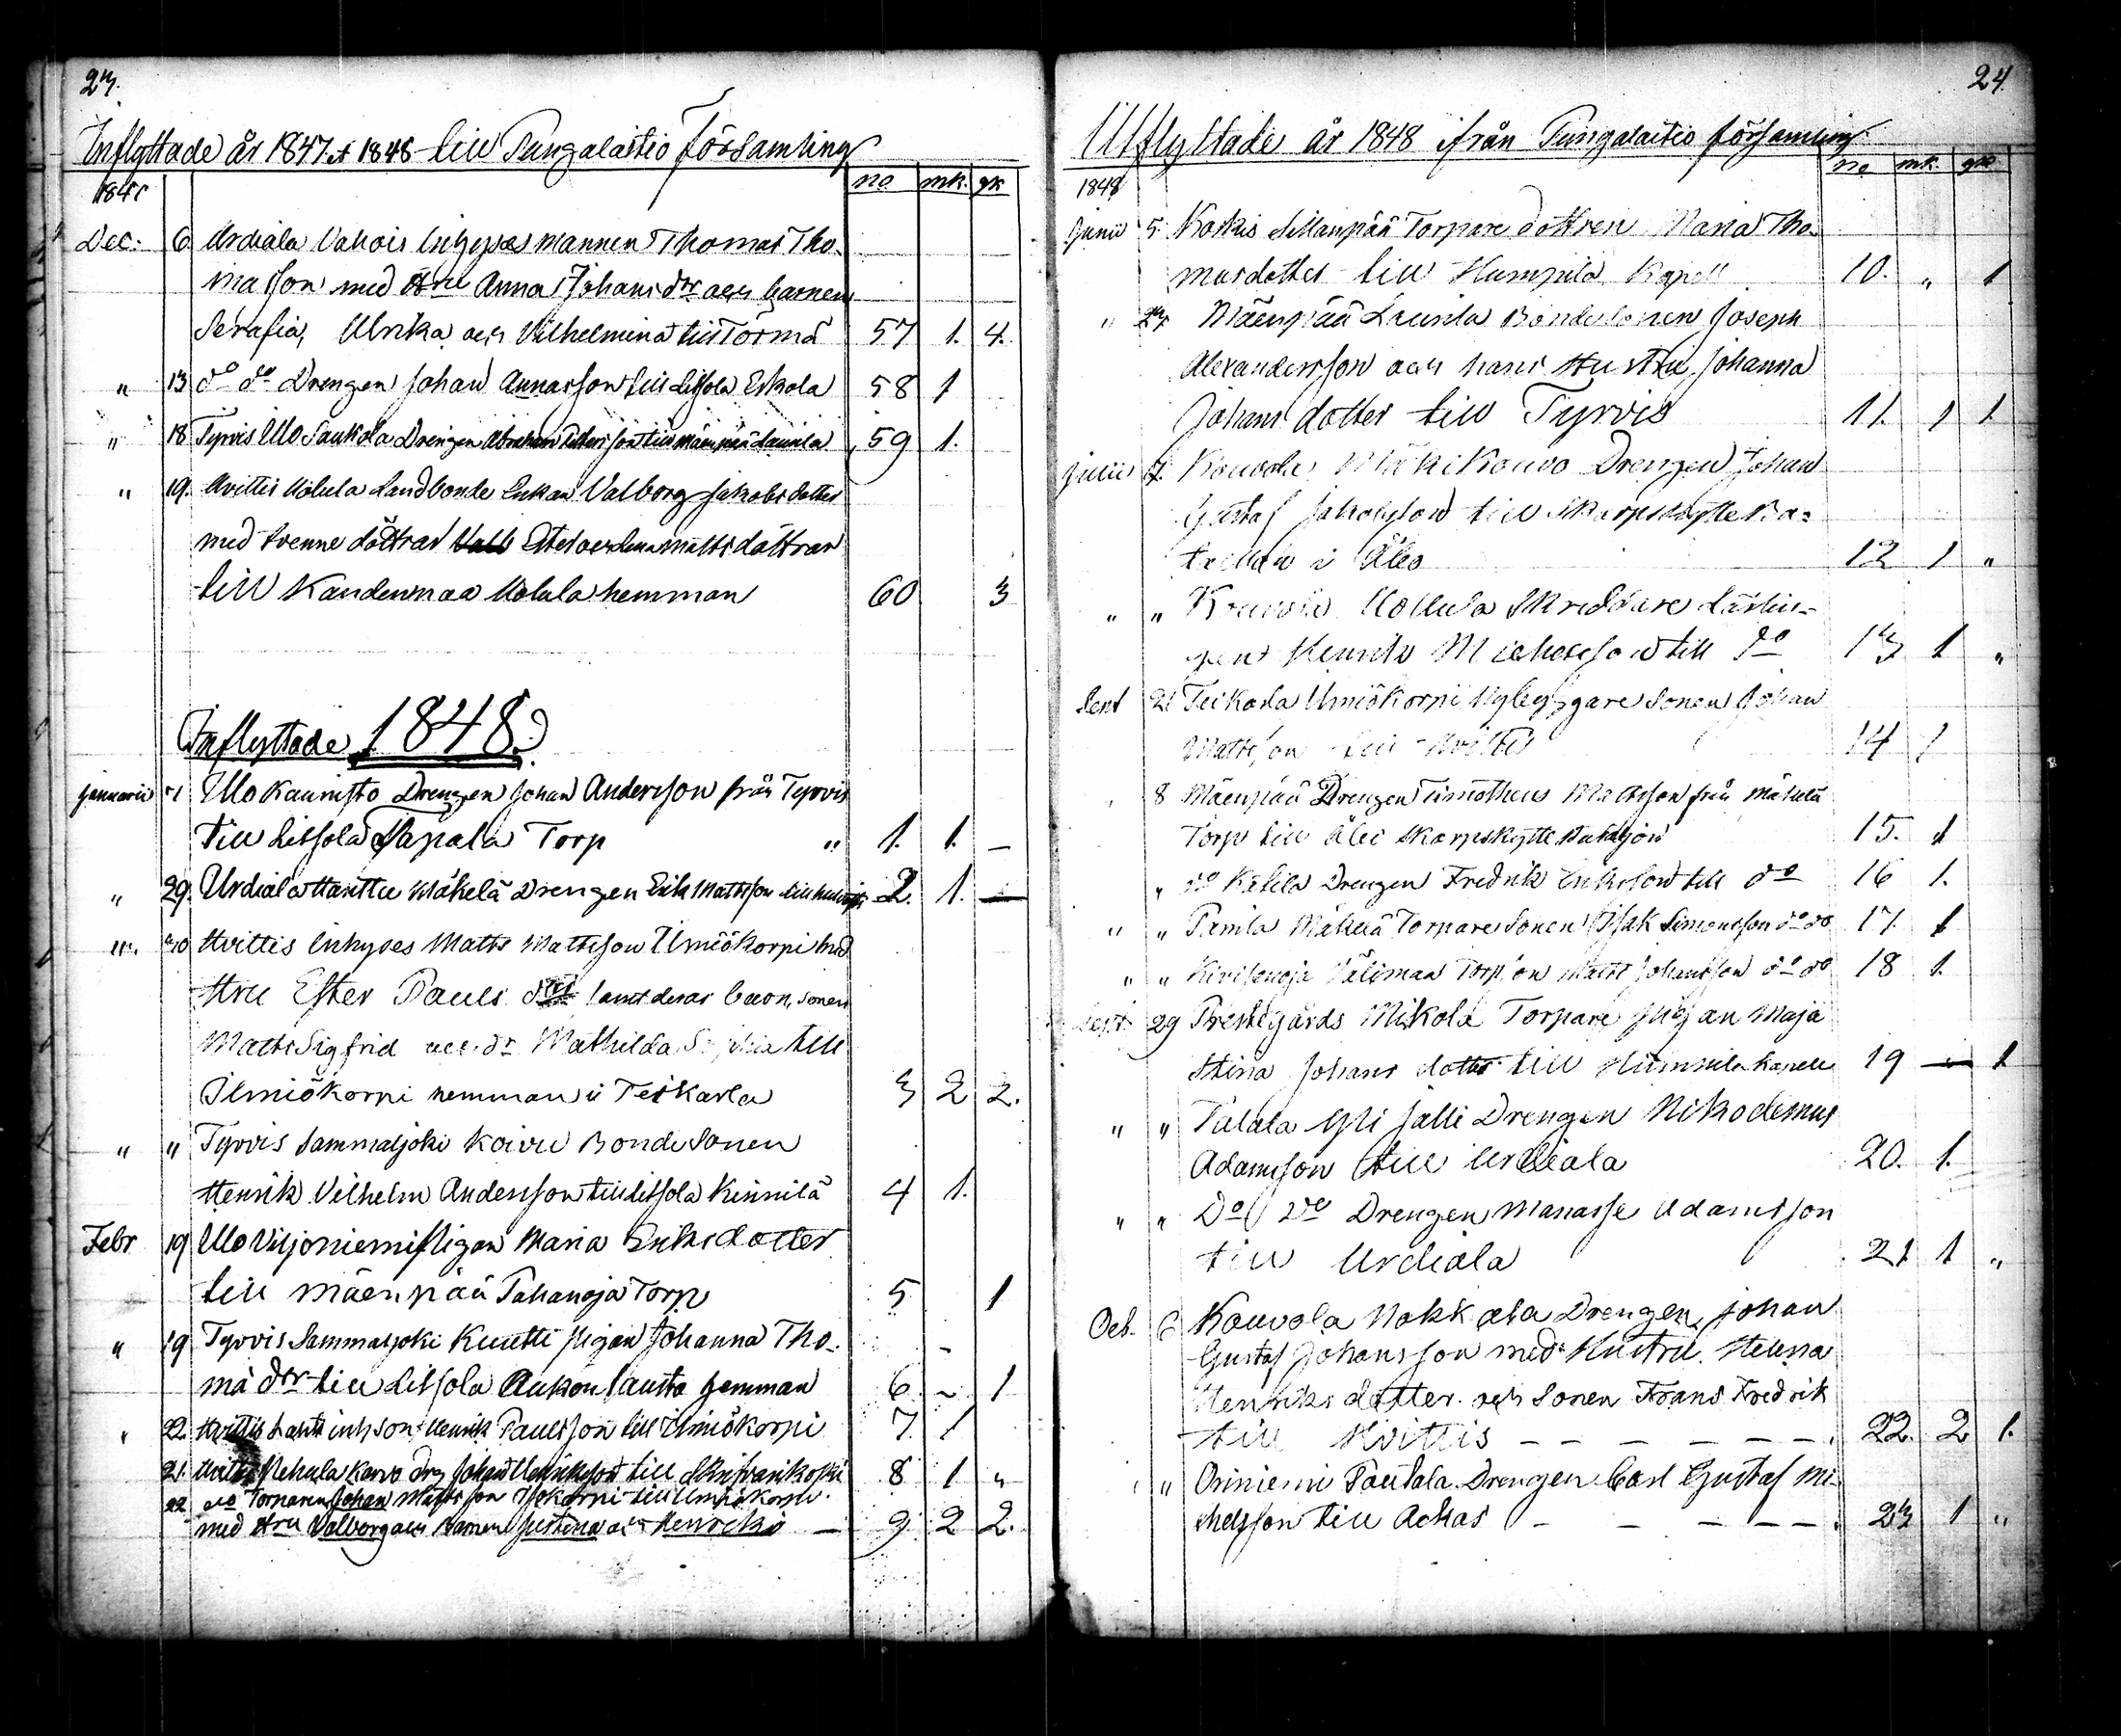 23.
Inflyttade år 1847 & 1848 till Pungalaitio Församling
no mk. qk
1847
Dec: 6 Urdiala Vahois Inhyses mannen Thomas Tho-
masson med Hru Anna Johans dtr och barnen
Serafia, Ulrika och Vilhelmina till Tormä 57 1. 4.
" 13 do do Drengen Johan Annasson till Litsola Eskola 58 1
" 18 Tyrvis Illo Saukola Drengen Abraham till Mäenpää Launila 59 1.
" 19. Hvittis Landbonde Enkan Valborg Jakobs dotter
med tvenne döttrar Matts döttrar
till Kandenmaa hemman 60 3
Inflyttade 1848.
januarii 1 Illo Kaunisto Drengen Johan Andersson från Tyrvis
till Litsola Tapala Torp " 1. 1. –
" 29. Urdiala Hanttu Mäkelä Drengen Erik Mattsson till 2. 1. –
" 30 Hvittis Inhyses Matts Mattsson Ilmiökorpi med
Hru Ester Pauls dtr samt deras barn, sonen
Matts Sigfrid och dr Mathilda Sophia till
Ilmiökorpi hemman i Teikarla 3 2 2.
" " Tyrvis Sammaljoki Koivu Bonde Sonen
Henrik Vilhelm Andersson till Litsola Kinnilä 4 1.
Febr 19 Illo Viljoniemi Pigan Maria Eriksdotter
till Mäenpää Pahanoja Torp 5 1
" 19 Tyrvis Sammaljoki Kuutti pigan Johanna Tho-
mä dtr till Litsola Aukon hemman 6 ~ 1
" 22. Hvittis Lahti inh son Henrik Paulsson till Ilmiökorpi 7. 1
21. Hvittis Nehula Karvo drg Johan Henriksson till 8 1 "
22 do Torparen Johan Mattsson till Ilmiökorpi
med Hru Valborg och Barnen Justina och Henrika – 9. 2 2.
24.
Utflyttade år 1848 ifrån Pungalaitio församling
no mk. qk
1848
Junii 5. Koskis Sillanpää Torpare dottren Maria Tho-
masdotter till Humpila Kapell 10. " 1
" 23 Mäenpää Launila Bondesonen Joseph
Alexandersson och hans Hustru Johanna
Johans dotter till Tyrvis 11. 1 1.
julii 7. Kouvola Mäkikouvo Drengen Johan
Gustaf Jakobsson till Skarpskytte Ba=
taillon i Åbo 12 1 "
" " Kouvola Uotila Skreddare Lärlin-
gen Henrik Michelsson till do 13 1 "
Sept 2 Teikarla Ilmiökorpi Nybyggare Sonen Johan
Mattsson till Hvittis 14 1
" 8 Mäenpää Drengen Timotheus Mattsson från Mäkelä
Torp till Åbo Skarpskytte Bataljon 15. 1
" do Kätilä Drengen Fredrik Eriksson till do 16 1.
" " Mäkelä Torpare Sonen Isak Simonsson do do 17. 1
" " Kivisenoja Välimaa Torp son Matts Johansson do do 18 1.
Sept. 29 Prestgårds Mikola Torpare pigan Maja
Stina Johans dotter till Humpila Kapell 19 – 1
" " Palala Yli Jalli Drengen Nikodemus
Adamsson till Urdiala 20. 1.
" " Do do Drengen Manasse Adamsson
till Urdiala 21 1 "
Oct. 6 Kouvola Nokkala Drengen Johan
Gustaf Johansson med Hustru Helena
Henriks dotter och Sonen Frans Fredrik
till Hvittis – – – – – – 22. 2 1.
" " Oriniemi Pautala Drengen Carl Gustaf Mi-
chelsson till Achas – – – – – 23 1 "